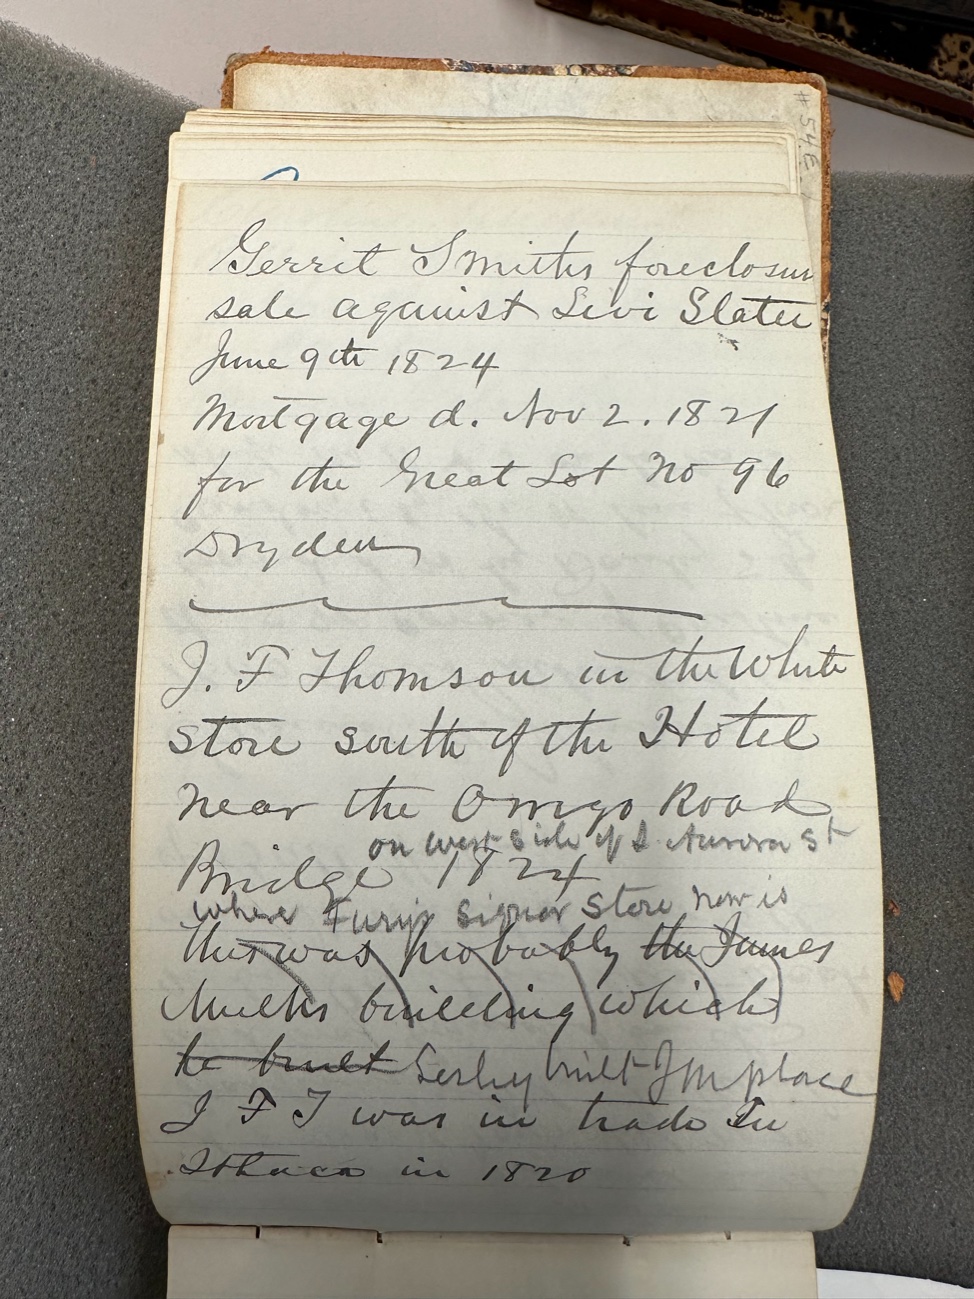 # 54E
Gerrit Smiths foreclosur
sale against Levi Slater
June 9th 1824
Mortgage d. Nov 2. 1821
for the Great Lot No 96
Dryden
J. F Thomson in the White
store south of the Hotel
near the Owego Road
on west side of S. Aurora st
Bridge 1824
where Signor Store now is
this was probably the James
Mulks building which
he built Sesby built J M place
J F T was in trade In
Ithaca in 1820